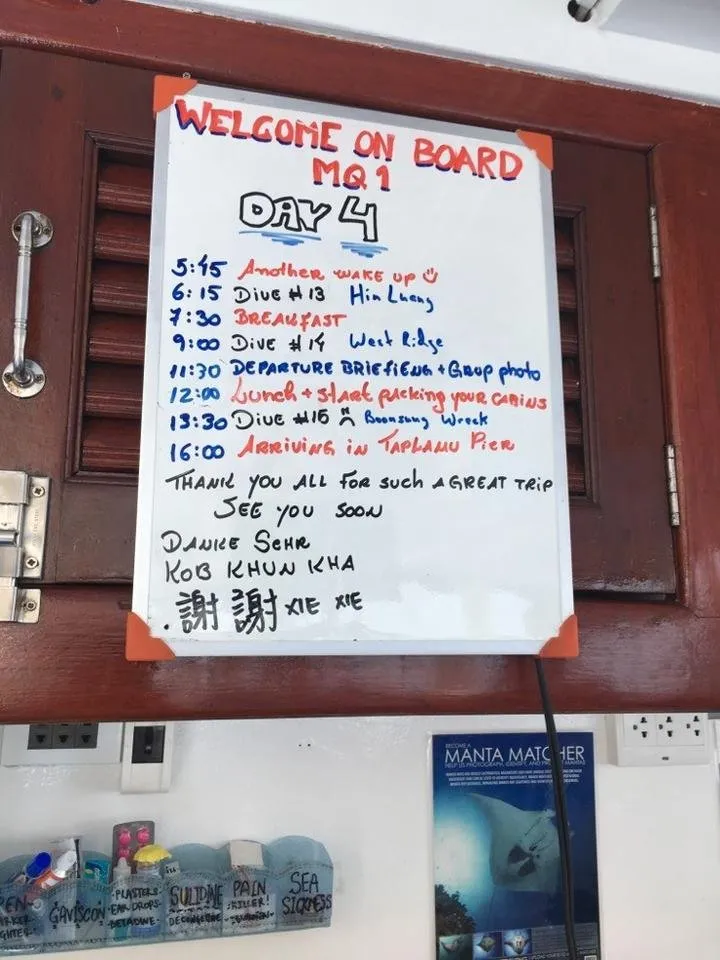 WELCOME ON BOARD
MQ1
DAY 4
5:45 Another wake up
6:15 Dive #13 Hin Luang
7:30 BREAKFAST
9:00 Dive #14 West Ridge
11:30 DEPARTURE BRIEFIENG + Group photo
12:00 Lunch + start packing your cabins
13:30 Dive #15 Boonsung Wreck
16:00 ARRIVING in TAPLAMU PIER
THANK YOU ALL FOR such A GREAT TRIP
SEE YOU SOON
DANKE SEHR
KOB KHUN KHA
. 謝 謝 XIE XIE
BECOME A
MANTA MATCHER
GAVISCON
PLASTERS
EAR DROPS
BETADINE
SULIDINE
PAIN
KILLER!
SEA
SICKNESS